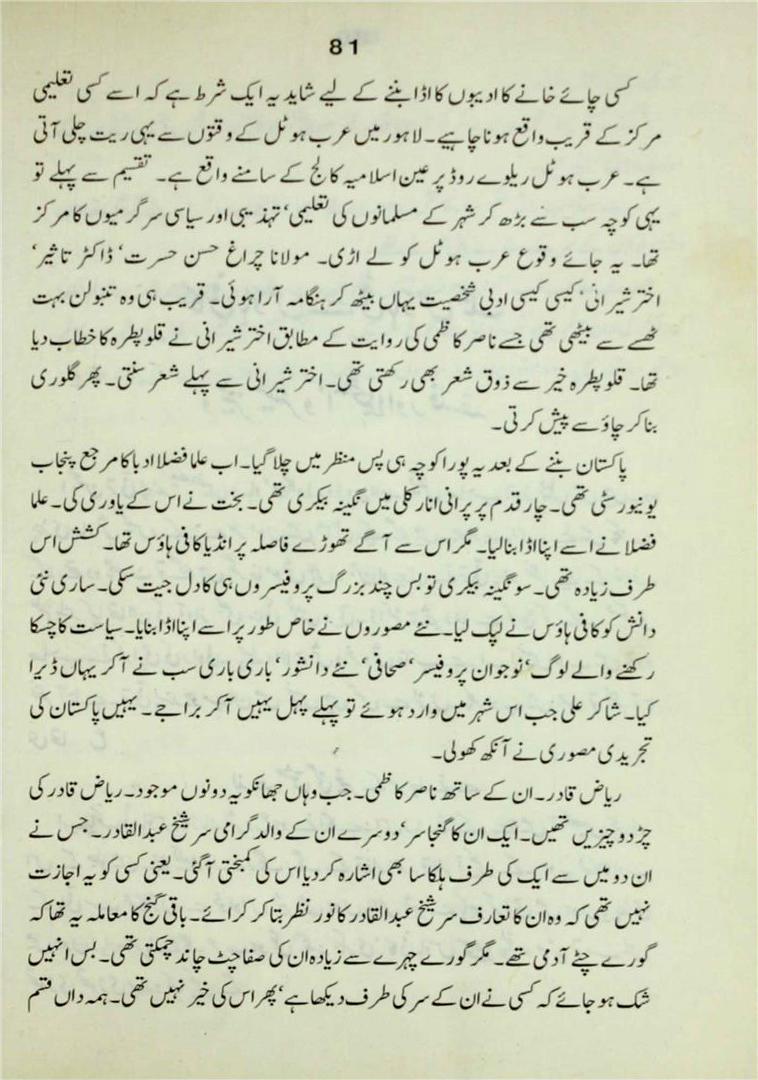 81
کسی چائے خانے کا ادیبوں کا اڈا بننے کے لیے شاید یہ ایک شرط ہے کہ اسے کسی تعلیمی
مرکز کے قریب واقع ہونا چاہیے۔ لاہور میں عرب ہوٹل کے وقتوں سے یہی ریت چلی آتی
ہے۔ عرب ہوٹل ریلوے روڈ پر عین اسلامیہ کالج کے سامنے واقع ہے۔ تقسیم سے پہلے تو
یہی کوچہ سب سے بڑھ کر شہر کے مسلمانوں کی تعلیمی‘ تہذیبی اور سیاسی سرگرمیوں کا مرکز
تھا۔ یہ جائے وقوع عرب ہوٹل کو لے اڑی۔ مولانا چراغ حسن حسرت‘ ڈاکٹر تاثیر‘
اختر شیرانی‘ کیسی کیسی ادبی شخصیت یہاں بیٹھ کر ہنگامہ آرا ہوئی۔ قریب ہی وہ تنبولن بہت
ٹھسے سے بیٹھی تھی جسے ناصر کاظمی کی روایت کے مطابق اختر شیرانی نے قلوپطرہ کا خطاب دیا
تھا۔ قلوپطرہ خیر سے ذوق شعر بھی رکھتی تھی۔ اختر شیرانی سے پہلے شعر سنتی۔ پھر گلوری
بنا کر چاؤ سے پیش کرتی۔
پاکستان بننے کے بعد یہ پورا کوچہ ہی پس منظر میں چلا گیا۔ اب علما فضلا ادبا کا مرجع پنجاب
یونیورسٹی تھی۔ چار قدم پر پرانی انار کلی میں نگینہ بیکری تھی۔ بخت نے اس کے یاوری کی۔ علما
فضلا نے اسے اپنا اڈا بنا لیا۔ مگر اس سے آگے تھوڑے فاصلہ پر انڈیا کافی ہاؤس تھا۔ کشش اس
طرف زیادہ تھی۔ سو نگینہ بیکری تو بس چند بزرگ پروفیسروں ہی کا دل جیت سکی۔ ساری نئی
دانش کو کافی ہاؤس نے لپک لیا۔ نئے مصوروں نے خاص طور پر اسے اپنا اڈا بنایا۔ سیاست کا چسکا
رکھنے والے لوگ‘ نوجوان پروفیسر‘ صحافی‘ نئے دانشور‘ باری باری سب نے آکر یہاں ڈیرا
کیا۔ شاکر علی جب اس شہر میں وارد ہوئے تو پہلے پہل یہیں آکر براجے۔ یہیں پاکستان کی
تجریدی مصوری نے آنکھ کھولی۔
ریاض قادر۔ ان کے ساتھ ناصر کاظمی۔ جب وہاں جھانکو یہ دونوں موجود۔ ریاض قادر کی
چڑ دو چیزیں تھیں۔ ایک ان کا گنجا سر‘ دوسرے ان کے والد گرامی سر شیخ عبدالقادر۔ جس نے
ان دو میں سے ایک کی طرف ہلکا سا بھی اشارہ کر دیا اس کی کمبختی آگئی۔ یعنی کسی کو یہ اجازت
نہیں تھی کہ وہ ان کا تعارف سر شیخ عبدالقادر کا نور نظر بتا کر کرائے۔ باقی گنج کا معاملہ یہ تھا کہ
گورے چٹے آدمی تھے۔ مگر گورے چہرے سے زیادہ ان کی صفاچٹ چاند چمکتی تھی۔ بس انہیں
شک ہو جائے کہ کسی نے ان کے سر کی طرف دیکھا ہے‘ پھر اس کی خیر نہیں تھی۔ ہمہ داں قسم